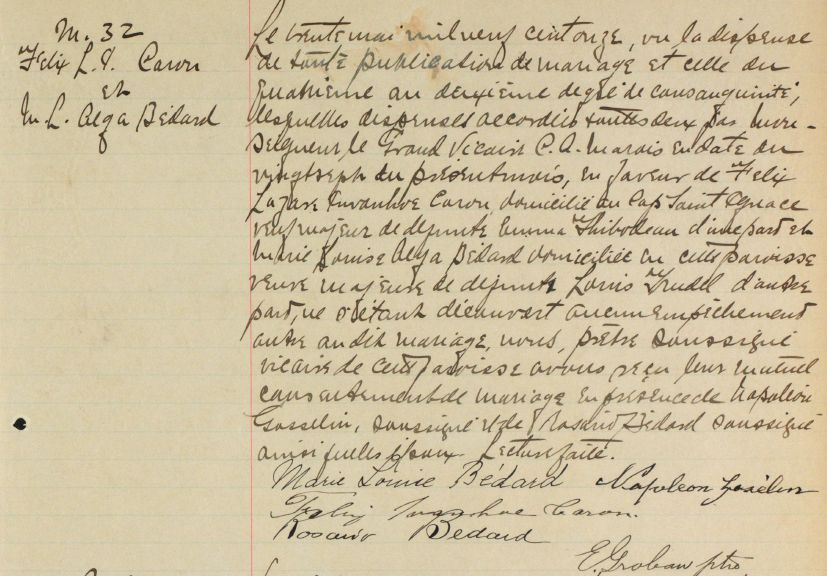 M. 32
Felix L. I. Caron
et
M. L. Alga Bédard
Le trente mai mil neuf cent onze, vu la dispense
de toute publication de mariage et celle du
quatrième au deuxième degré de consanguinité,
lesquelles dispenses accordées toutes deux par Monsei-
seigneur le Grand Vicaire C. A. Marois en date du
vingt sept du présent mois, en faveur de Felix
Lazare Invanhoe Caron, domicilié au Cap Saint Ignace
veuf majeur de défunte Emma Thibodeau d'une part et
Marie Louise Alga Bédard domiciliée en cette paroisse
veuve majeure de défunt Louis Trudel d'autre
part, ne s'étant découvert aucun empêchement
autre au dit mariage, nous, prêtre soussigné
vicaire de cette paroisse avons reçu leur mutuel
consentement de mariage en présence de Napoléon
Gosselin, soussigné et de Rosario Bédard soussigné
ainsi que les époux. Lecture faite.
Marie Louise Bédard Napoleon Gosselin
Felix Invanhoe Caron.
Rosario Bedard
ptre